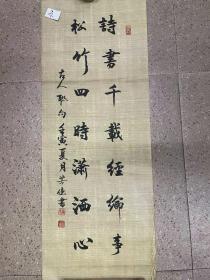 詩書千載經綸事
松竹四時瀟洒心
古人聯句 壬寅夏月